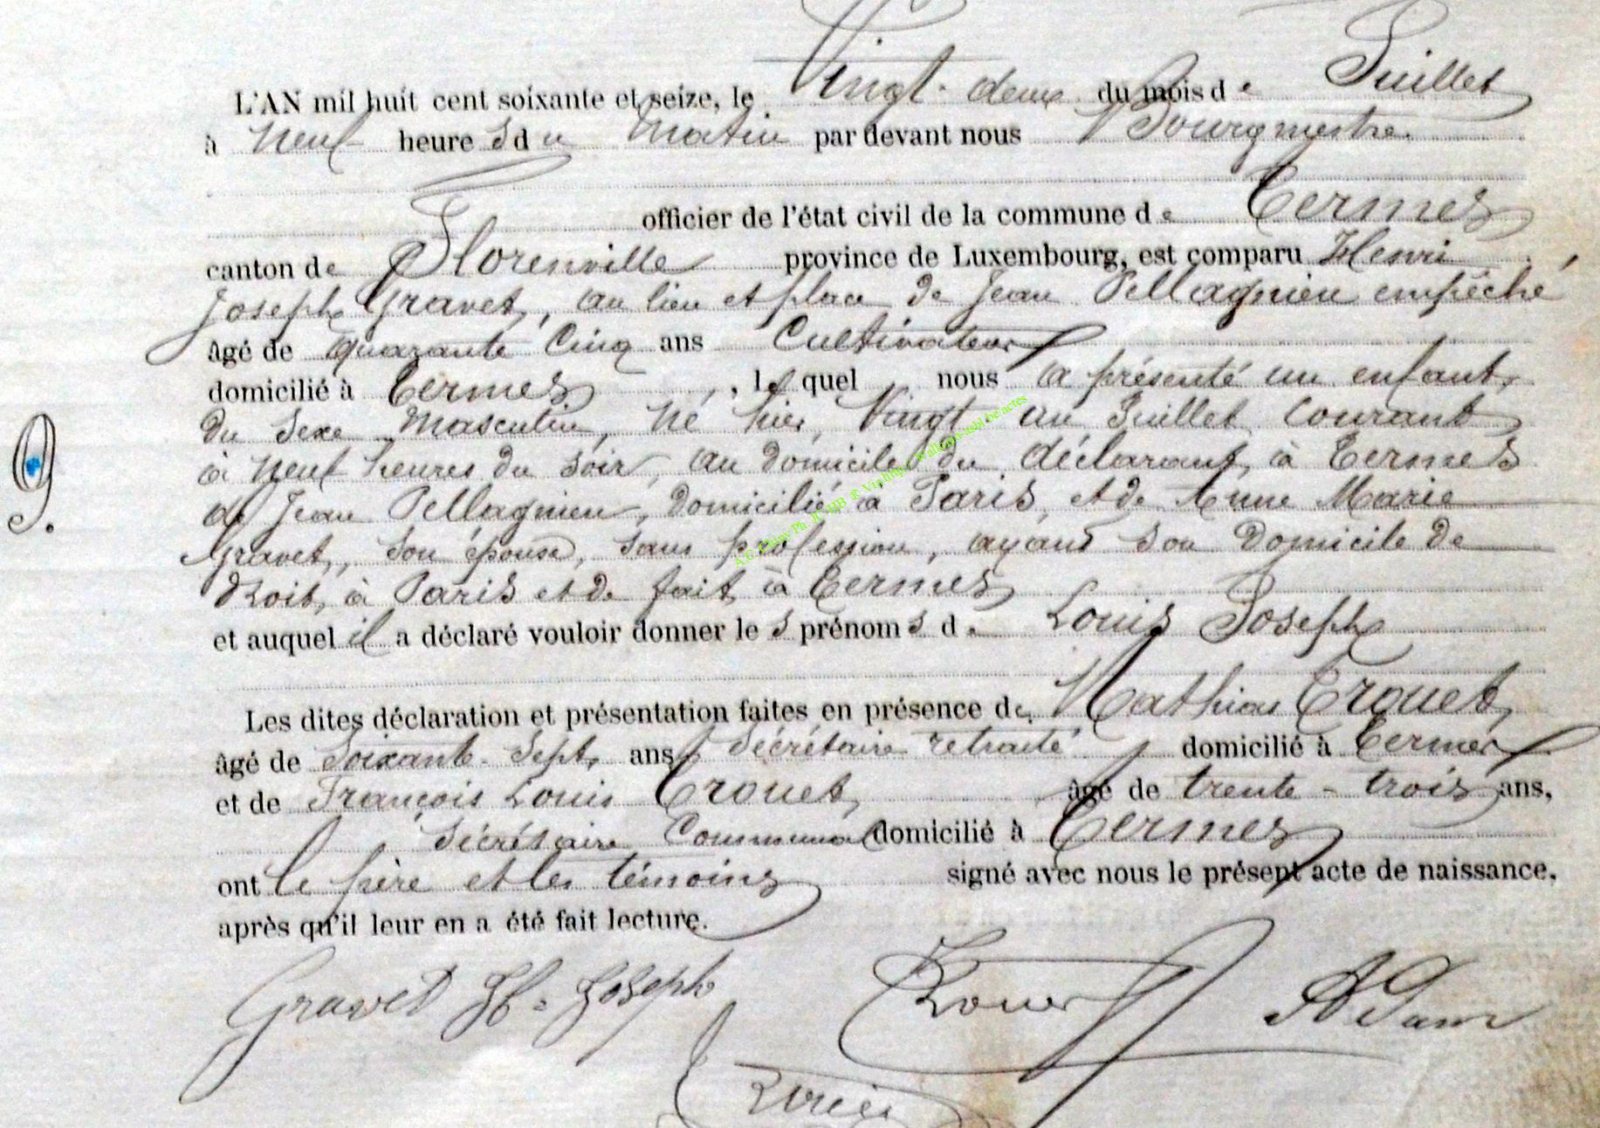 L'AN mil huit cent soixante et seize, le Vingt-deux du mois de Juillet
à Neuf heures du Matin par devant nous Bourgmestre
officier de l'état civil de la commune de Termes
canton de Florenville province de Luxembourg, est comparu Henri
Joseph Gravet, au lieu et place de Jean Pellagnieu empêché
âgé de quarante Cinq ans Cultivateur
domicilié à Termes, lequel nous a présenté un enfant
du sexe Masculin, né hier, Vingt un Juillet Courant
à Neuf heures du soir, au domicile du déclarant, à Termes
de Jean Pellagnieu, domicilié à Paris, et de Anne Marie
Gravet, son épouse, sans profession, ayant son domicile de
droit, à Paris et de fait à Termes
et auquel il a déclaré vouloir donner les prénoms de Louis Joseph
9.
Les dites déclaration et présentation faites en présence de Mathias Trouet,
âgé de Soixante-Sept ans, Secrétaire retraité domicilié à Termes
et de François Louis Trouet, âgé de trente-trois ans,
Secrétaire Communal domicilié à Termes
ont le père et les témoins signé avec nous le présent acte de naissance,
après qu'il leur en a été fait lecture.
Gravet H. Joseph Trouet Adam